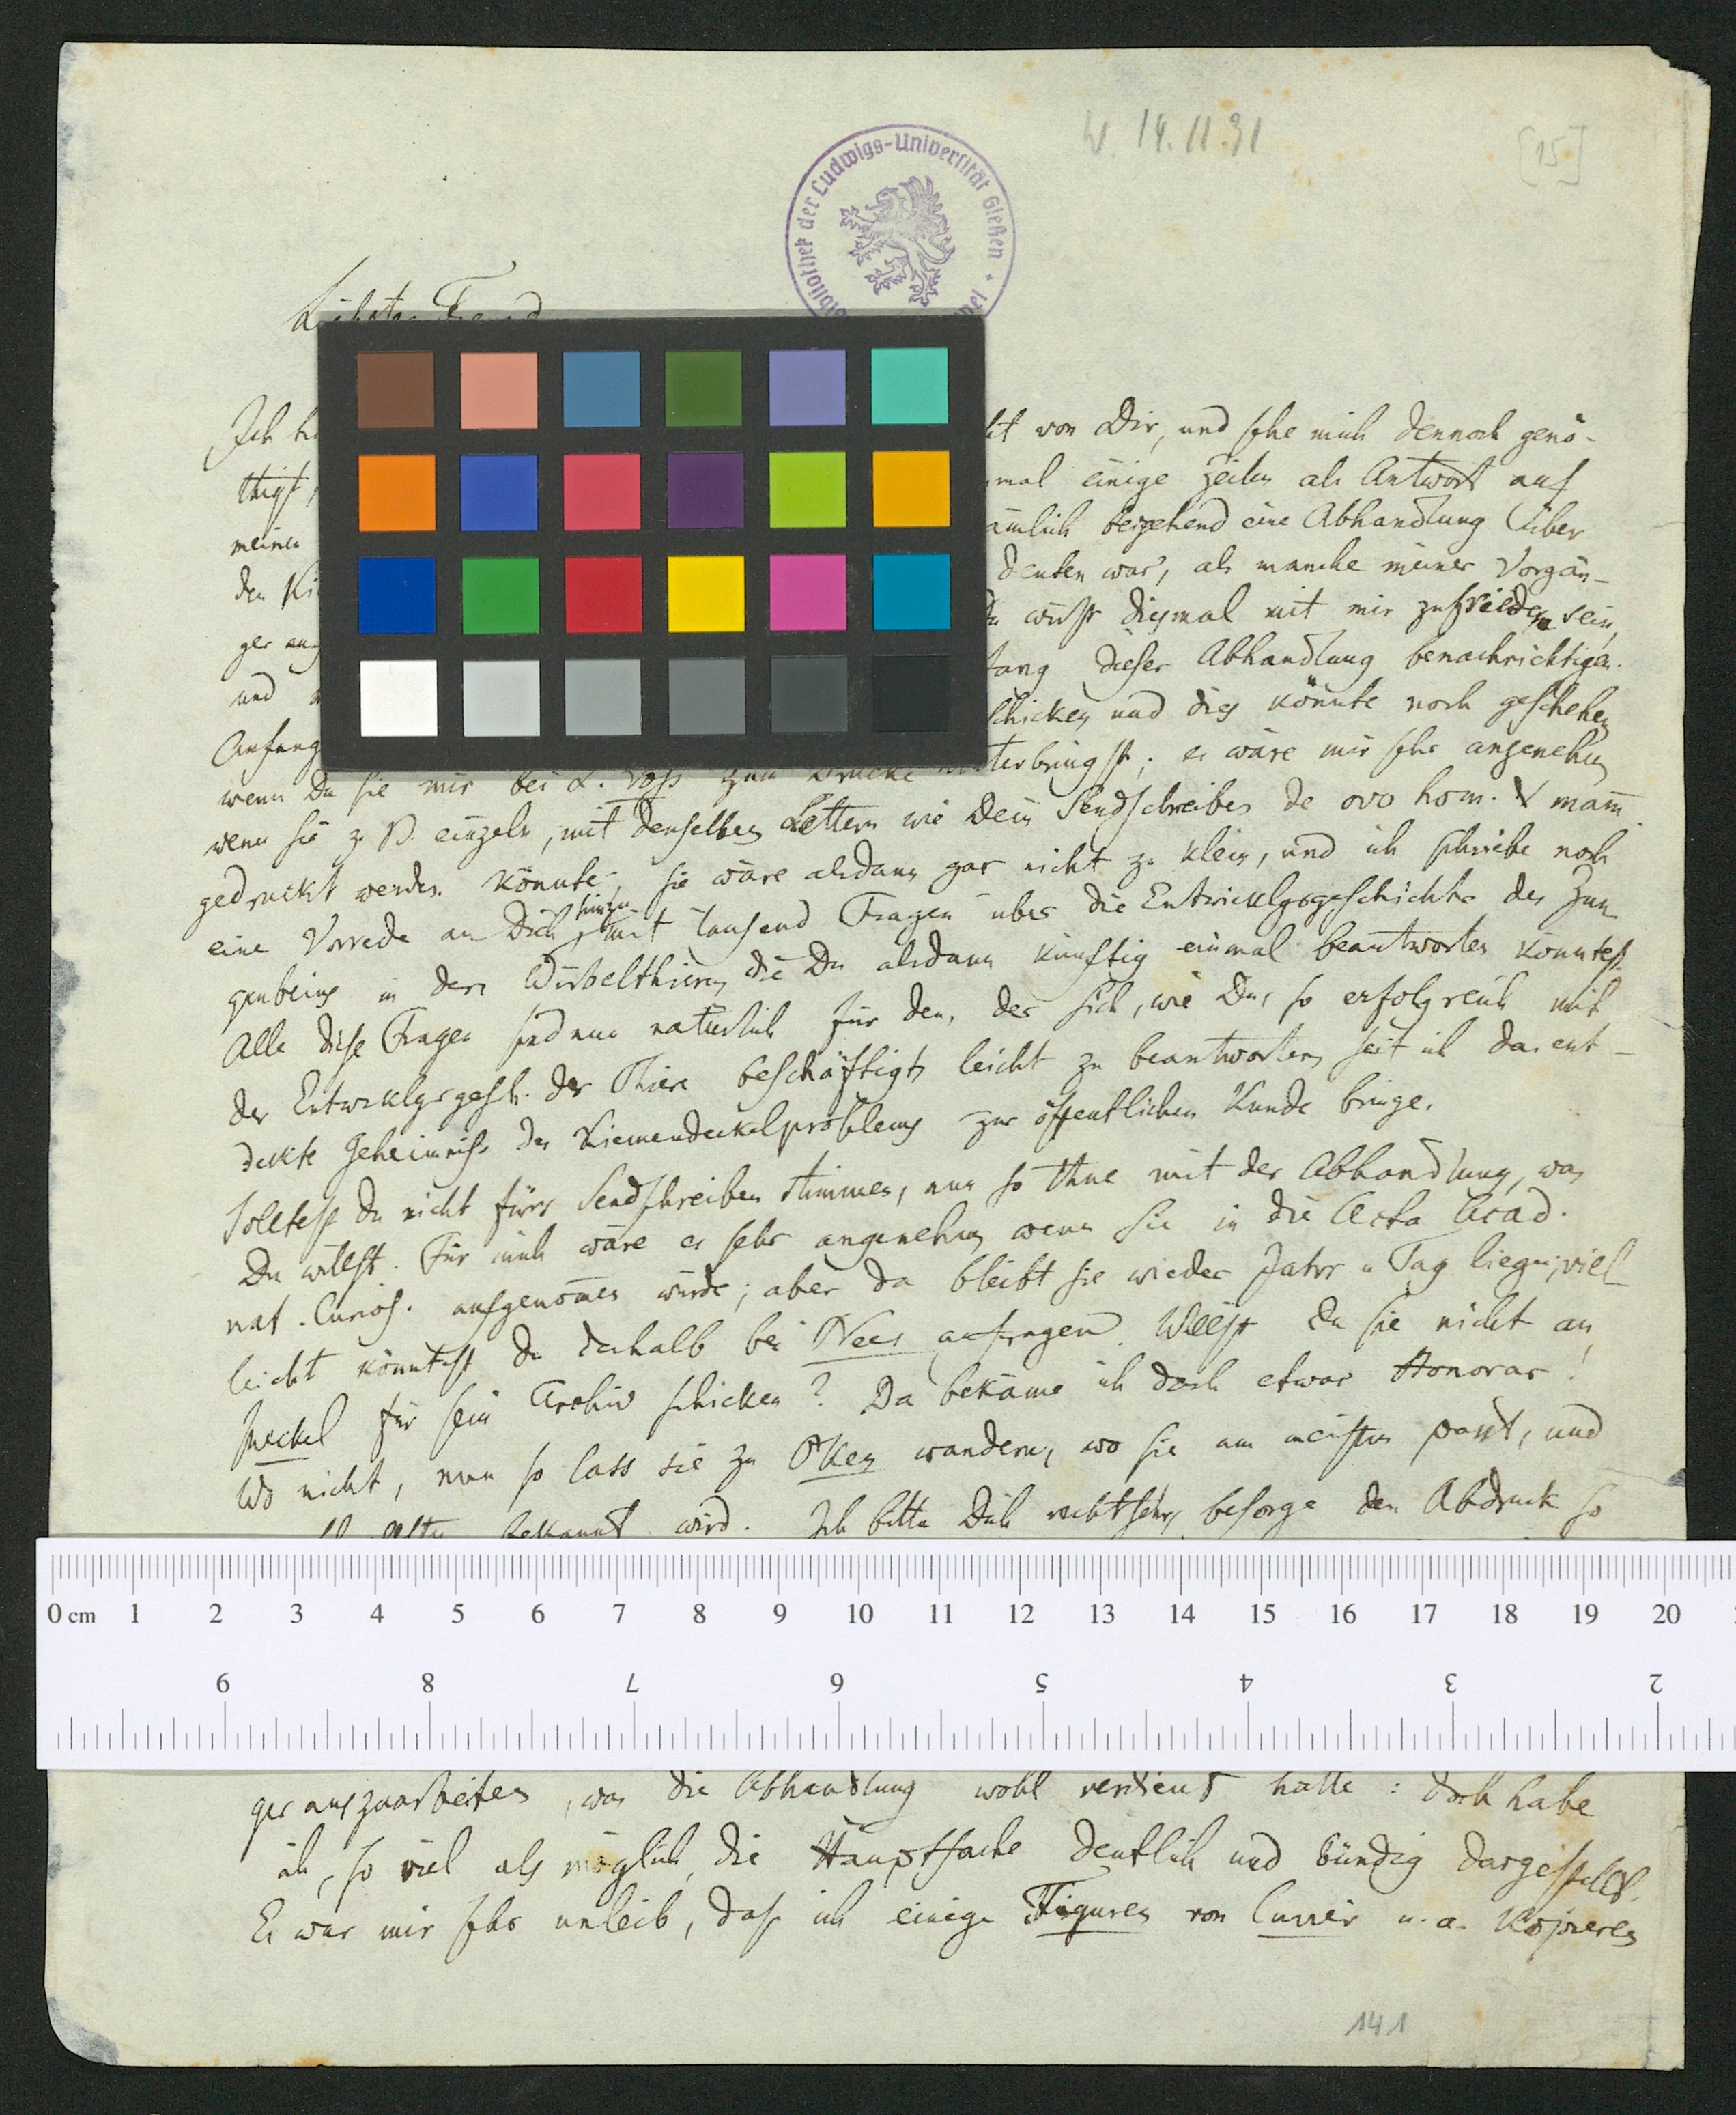 W. 14.11.31
[15]
Bibliothek der Ludwigs-Universität Gießen
Liebster Freund
Ich von Dir, und sehe mich dennoch genö-
thigt, mal einige Zeilen als Antwort auf
meinen beigehend eine Abhandlung über
den denken war, als manche meiner Vorgän-
ger diesmal mit mir zufrieden sein,
und dieser Abhandlung benachrichtigen.
Anfang schicken und dies könnte noch geschehen
wenn Du sie mir bei L. Voss zum Drucke unterbringst; es wäre mir sehr angenehm
wenn sie z. B. einzeln, mit denselben Lettern wie Dein Sendschreiben de ovo hom. & mam̄.
gedruckt werden könnte, sie wäre alsdann gar nicht zu klein, und ich schriebe noch
eine Vorrede an Dich hinzu, mit tausend Fragen über die Entwicklgsgeschichte des Zun
genbeins in den Wirbelthieren, die Du alsdann künftig einmal beantworten könntest.
Alle diese Fragen sind nun natürlich für den, der sich, wie Du, so erfolgreich mit
der Entwcklgsgesch. der Thiere beschäftigt, leicht zu beantworten, seit ich das ent-
deckte Geheimniss des Kiemendeckelproblems zur öffentlichen Kunde bringe.
Solltest Du nicht fürs Sendschreiben stimmen, nun so thue mit der Abhandlung, was
Du willst. Für mich wäre es sehr angenehm, wenn sie in die Acta Acad.
nat. Curios. aufgenom̄en würde; aber da bleibt sie wieder Jahr u Tag liegen; viel
leicht könntest Du deshalb bei Nees anfragen. Willst Du sie nicht an
Meckel für sein Archiv schicken? Da bekäme ich doch etwas Honorar!
Wo nicht, nun so lass sie zu Oken wandern, wo sie am meisten passt, und
bekannt wird. Ich bitte Dich recht sehr, besorge den Abdruck so
0 cm 1 2 3 4 5 6 7 8 9 10 11 12 13 14 15 16 17 18 19 20
9 8 7 6 5 4 3 2
ger auszuarbeiten, was die Abhandlung wohl verdient hätte: doch habe
ich, so viel als möglich, die Hauptsache deutlich und bündig dargestellt.
Es war mir sehr unlieb, dass ich einige Figuren von Cuvier u. a. kopieren
141